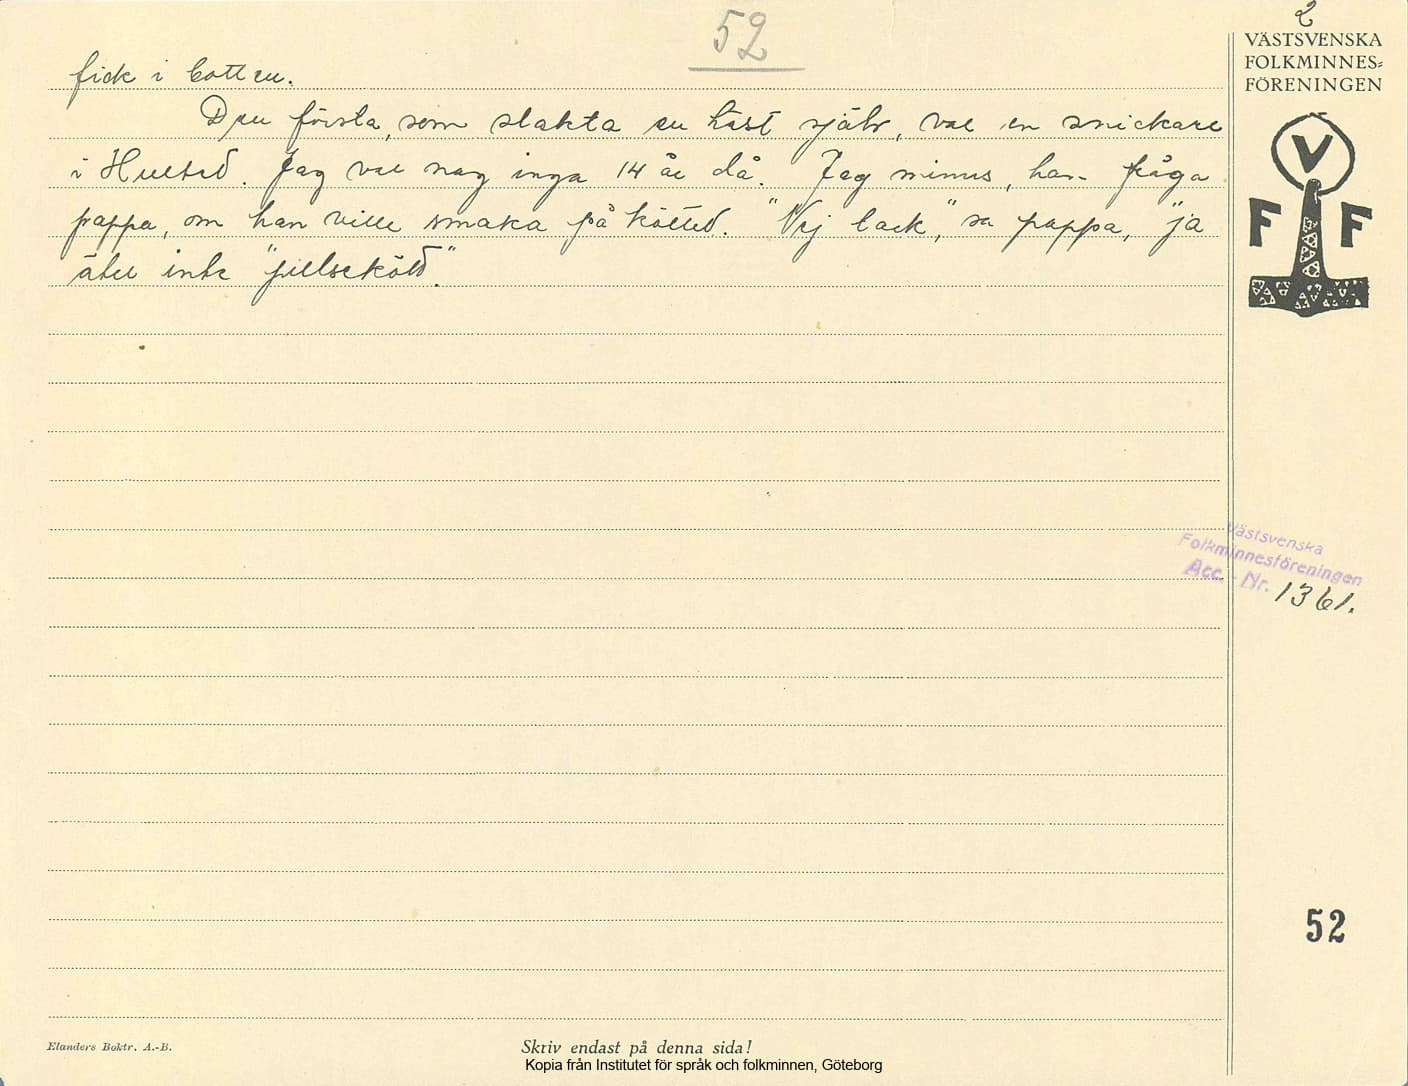 52
2
VÄSTSVENSKA
FOLKMINNES=
FÖRENINGEN
V
F F
fick i botten.
Den första, som slakta en häst själv, var en snickare
i Hulta. Jag var nog inga 14 år då. Jag minns, han fråga
pappa, om han ville smaka på köttet. "Nej tack," sa pappa, "ja
äter inte "pillseköttt"."
Västsvenska
Folkminnesföreningen
Acc. - Nr. 1361.
52
Elanders Boktr. A.-B.
Skriv endast på denna sida!
Kopia från Institutet för språk och folkminnen, Göteborg